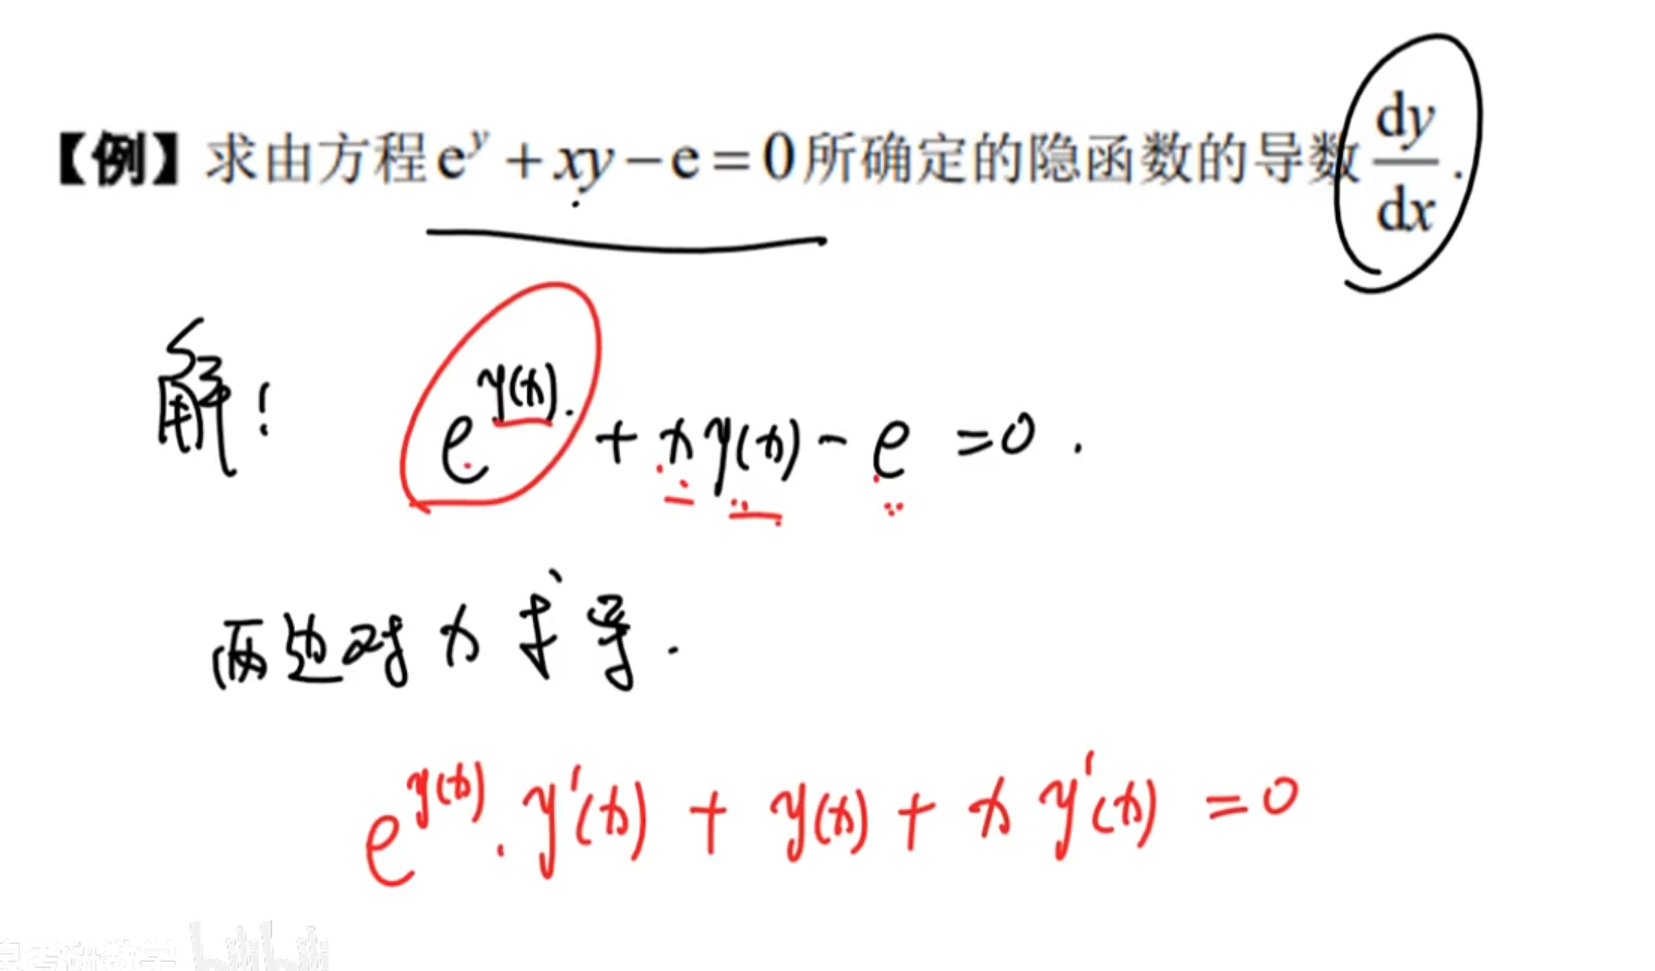 【例】求由方程 e^y + xy − e = 0 所确定的隐函数的导数 dy/dx .
解: e^{y(x)} + x y(x) − e = 0 .
两边对 x 求导 .
e^{y(x)} · y'(x) + y(x) + x y'(x) = 0
考研数学 bilibili